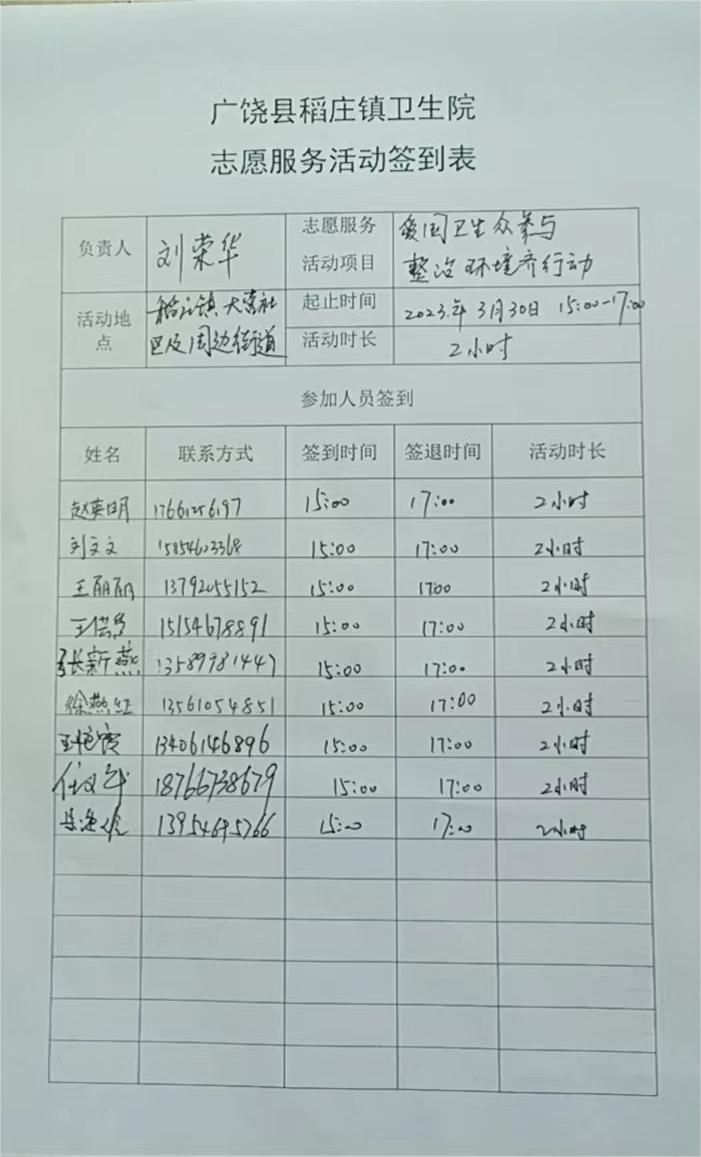 广饶县稻庄镇卫生院
志愿服务活动签到表
负责人 刘荣华 志愿服务活动项目 爱国卫生众参与
整治环境齐行动
活动地点 稻庄镇大营社
区及周边街道
起止时间 2023年3月30日 15:00-17:00
活动时长 2小时
参加人员签到
姓名 联系方式 签到时间 签退时间 活动时长
赵英明 15:00 17:00 2小时
刘文文 15:00 17:00 2小时
王丽丽 13792055152 15:00 1700 2小时
15154678891 15:00 17:00 2小时
张新燕 13589981447 15:00 17:00 2小时
徐燕红 13561054851 15:00 17:00 2小时
13406146896 15:00 17:00 2小时
18766738679 15:00 17:00 2小时
15:00 17:00 2小时